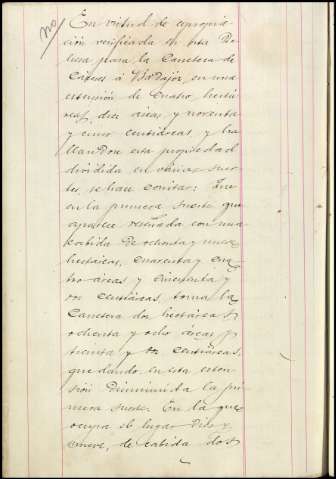 no
En virtud de expropia
ción verificada en esta De
hesa para la Carretera de
Cáceres á Badajóz, en una
extensión de cuatro hectá
reas, diez áreas y noventa
y cinco centiáreas, y ha
llandose esta propiedad
dividida en várias suer
tes, se hace constar: Que
en la primera suerte que
aparece reseñada con una
cabida de ochenta y nueve
hectáreas, cuarenta y cua
tro áreas y cincuenta y
dos centiáreas, toma la
Carretera dos hectáreas
ochenta y ocho áreas y
treinta y dos centiáreas,
quedando en esta exten
sión disminuida la pri
mera suerte. En la que
ocupa el lugar diez y
nueve, de cabida dos